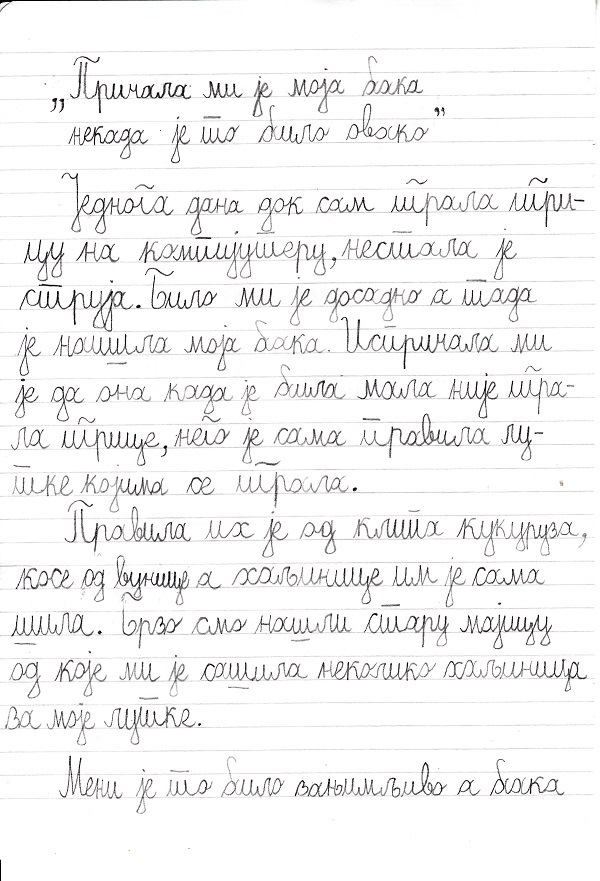 „Причала ми је моја бака
некада је то било овако”
Једнога дана док сам играла игри-
цу на компјутеру, нестала је
струја. Било ми је досадно а тада
је наишла моја бака. Испричала ми
је да она када је била мала није игра-
ла игрице, него је сама правила лу-
тке којима се играла.
Правила их је од клипа кукуруза,
косе од вунице а хаљинице им је сама
шила. Брзо смо нашли стару мајицу
од које ми је сашила неколико хаљиница
за моје лутке.
Мени је то било занимљиво а бака